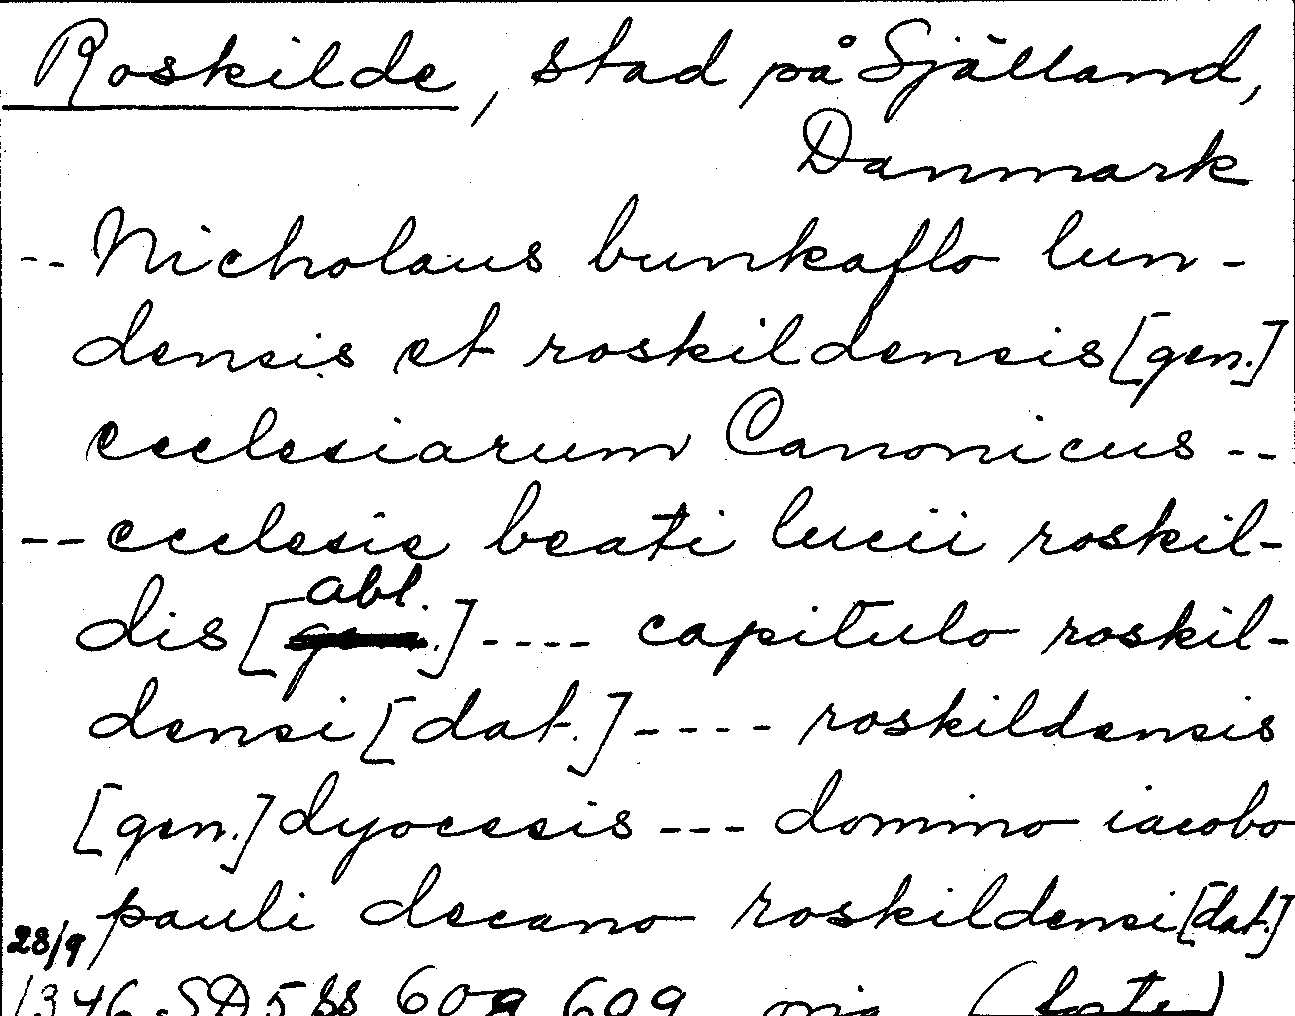 Roskilde, stad på Själland,
Danmark
-- Nicholaus bunkaflo lun-
densis et roskildensis [gen.]
ecclesiarum Canonicus --
-- ecclesie beati lucii roskil-
abl.
dis [gen.] ---- capitulo roskil-
densi [dat.] ---- roskildensis
[gen.] dyocesis --- domino iacobo
pauli decano roskildensi [dat.]
28/9
1346 SD 5 ss 608 609